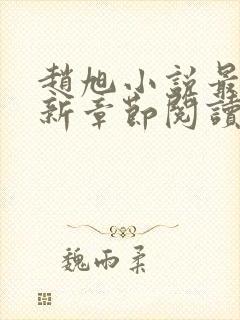 趙旭小說最
新章節閱讀
魏雨柔